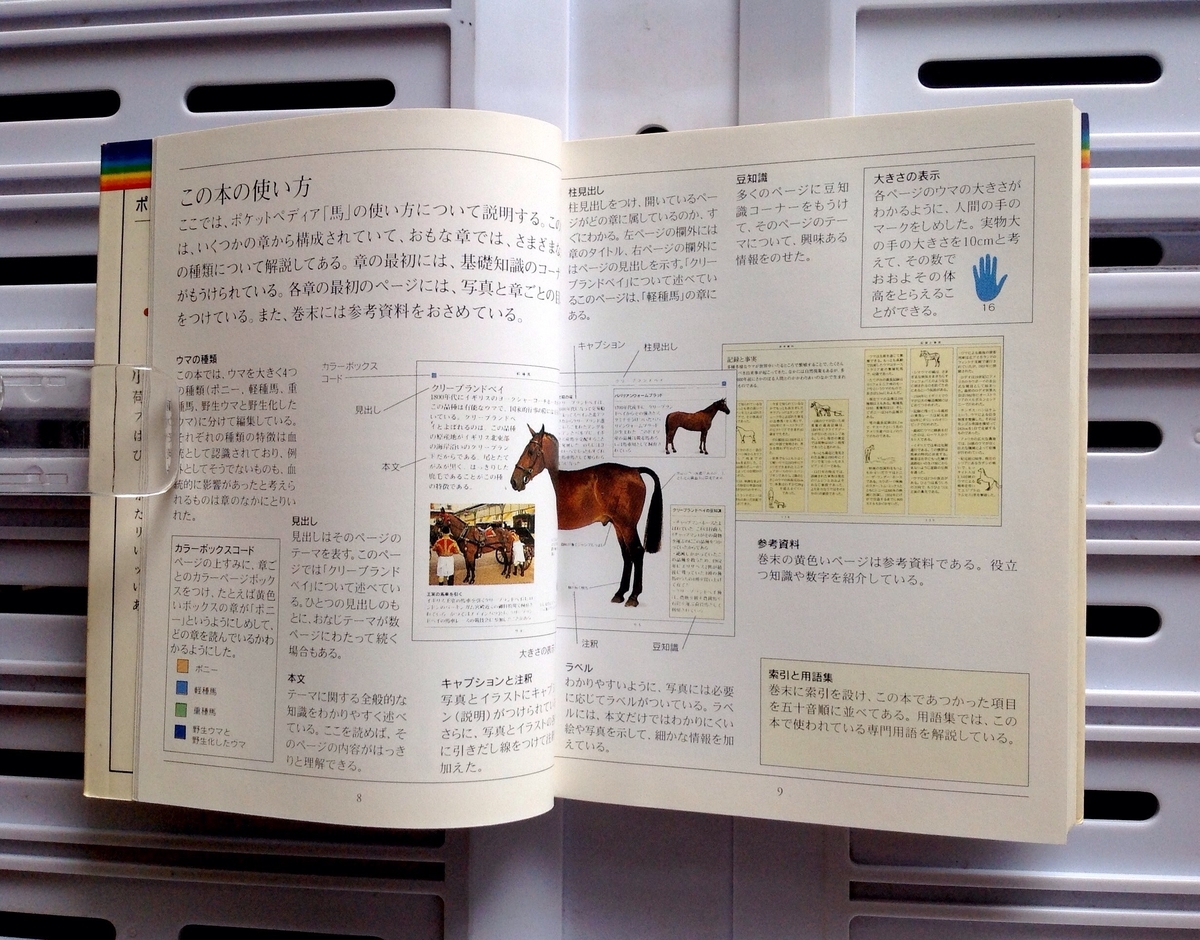 この本の使い方
ここでは、ポケットペディア「馬」の使い方について説明する。この
は、いくつかの章から構成されていて、おもな章では、さまざまな
の種類について解説してある。章の最初には、基礎知識のコーナ
がもうけられている。各章の最初のページには、写真と章ごとの目
をつけている。また、巻末には参考資料をおさめている。
ウマの種類
この本では、ウマを大きく4つ
の種類(ポニー、軽種馬、重
種馬、野生ウマと野生化した
ウマ)に分けて編集している。
それぞれの種類の特徴は血
として認識されており、例
としてそうでないものも、血
統的に影響があったと考えら
れるものは章のなかにとりい
れた。
カラーボックスコード
ページの上すみに、章ご
とのカラーページボック
スをつけ、たとえば黄色
いボックスの章が「ポニ
ー」というようにしめして、
どの章を読んでいるかわ
かるようにした。
ポニー
軽種馬
重種馬
野生ウマと
野生化したウマ
見出し
見出しはそのページの
テーマを表す。このペー
ジでは「クリーブランド
ベイ」について述べてい
る。ひとつの見出しのも
とに、おなじテーマが数
ページにわたって続く
場合もある。
本文
テーマに関する全般的な
知識をわかりやすく述べ
ている。ここを読めば、そ
のページの内容がはっき
りと理解できる。
カラーボックス
コード
見出し
本文
クリーブランドベイ
大きさの表示
キャプションと注釈
写真とイラストにキャプシ
ン(説明)がつけられてい
さらに、写真とイラストの
に引きだし線をつけて注釈
加えた。
8
柱見出し
柱見出しをつけ、開いているペー
ジがどの章に属しているのか、す
ぐにわかる。左ページの欄外には
章のタイトル、右ページの欄外に
はページの見出しを示す。「クリー
ブランドベイ」について述べてい
るこのページは、「軽種馬」の章に
ある。
豆知識
多くのページに豆知
識コーナーをもうけ
て、そのページのテー
マについて、興味ある
情報をのせた。
大きさの表示
各ページのウマの大きさが
わかるように、人間の手の
マークをしめした。実物大
の手の大きさを10cmと考
えて、その数で
おおよその体
高をとらえるこ
とができる。
16
キャプション
柱見出し
記録と事実
クリーブランドベイの豆知識
注釈
豆知識
参考資料
巻末の黄色いページは参考資料である。役立
つ知識や数字を紹介している。
ラベル
わかりやすいように、写真には必要
に応じてラベルがついている。ラベ
ルには、本文だけではわかりにくい
絵や写真を示して、細かな情報を加
えている。
索引と用語集
巻末に索引を設け、この本であつかった項目
を五十音順に並べてある。用語集では、この
本で使われている専門用語を解説している。
9